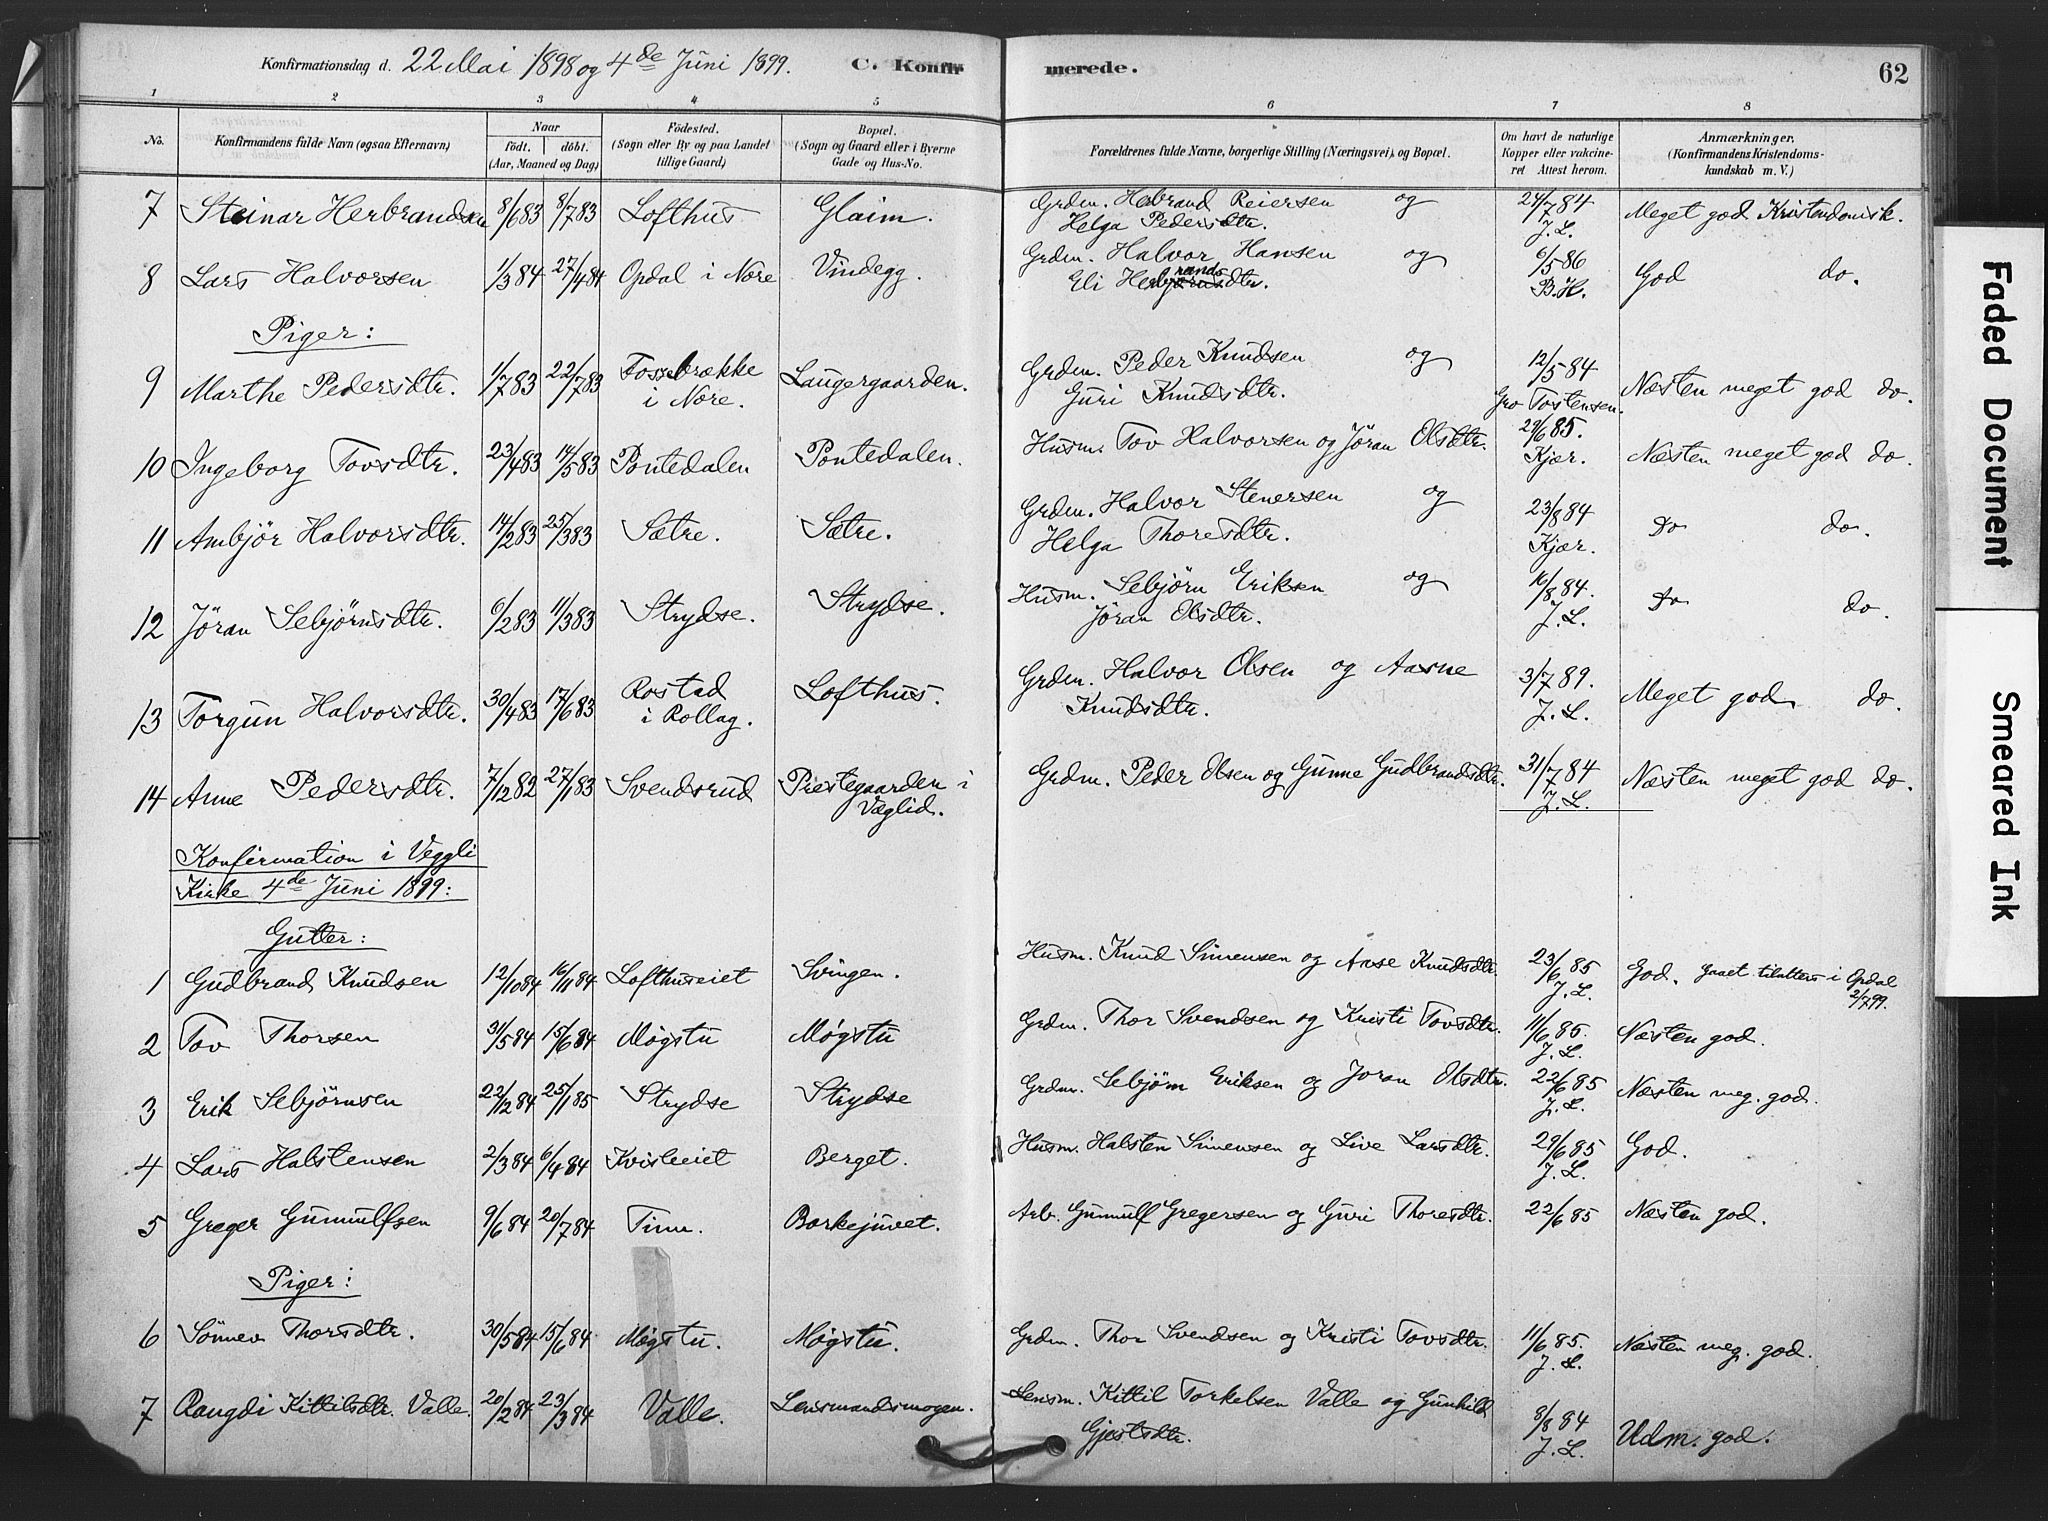 Konfirmationsdag d. 22 Mai 1898 og 4de Juni 1899. C. Konfirmerede. 62
1 2 3 4 5 6 7 8
No. Konfirmandens fulde Navn (ogsaa Efternavn) Naar født. døbt. (Aar, Maaned og Dag) Fødested. (Sogn eller By og paa Landet tillige Gaard) Bopæl. (Sogn og Gaard eller i Byerne Gade og Hus-No. Forældrenes fulde Navne, borgerlige Stilling (Næringsvei), og Bopæl. Om havt de naturlige Kopper eller vakcineret Attest herom. Anmærkninger. (Konfirmandens Kristendomskundskab m. V.)
7 Steinar Herbrandsen 8/6 83 8/7 83 Lofthus. Glaim. Grdm. Hebrand Reiersen og
Helga Pedersdtr. 24/7 84 J. L. Meget god Kristendomsk.
8 Lars Halvorsen 1/3 84 27/4 84 Opdal i Nore Vindegg. Grdm. Halvor Hansen og
Eli Herbrandsdtr. 6/5 86 B. H. God do.
Piger:
9 Marthe Pedersdtr. 1/7 83 22/7 83 Fossebrække i Nore. Laugergaarden. Grdm. Peder Knudsen og
Guri Knudsdtr. 12/5 84 Gro Tostensen. Næsten meget god do.
10 Ingeborg Tovsdtr. 23/4 83 14/5 83 Pontedalen Pontedalen. Husm. Tov Halvorsen og Jöran Olsdtr. 29/6 85. Kjær. Næsten meget god do.
11 Ambjör Halvorsdtr. 14/2 83 25/3 83 Sætre. Sætre. Grdm. Halvor Stenersen og
Helga Thoresdtr. 23/8 84 Kjær. Do do.
12 Jöran Sebjörnsdtr. 6/2 83 11/3 83 Strydse. Strydse. Husm. Sebjörn Eriksen og
Jöran Olsdtr. 16/8 84. J. L. Do do.
13 Torgun Halvorsdtr. 30/4 83 17/6 83 Rostad i Rollag. Lofthus. Grdm. Halvor Olsen og Aasne
Knudsdtr. 3/7 89. J. L. Meget god do.
14 Anne Pedersdtr. 7/12 82 27/1 83 Svendsrud Prestegaarden i Væglid. Grdm. Peder Olsen og Gunne Gudbrandsdtr. 31/7 84 J. L. Næsten meget god do.
Konfirmation i Veggli
Kirke 4de Juni 1899:
Gutter:
1 Gudbrand Knudsen 12/10 84 16/11 84 Lofthuseiet Svingen. Husm. Knud Simensen og Aase Knudsdtr. 23/6 85 J. L. God. Gaaet tilalters i Opdal 2/7 99.
2 Tov Thorsen 31/5 84 15/6 84 Møgstu Møgstu Grdm. Thor Svendsen og Kristi Tovsdtr. 11/6 85. J. L. Næsten god.
3 Erik Sebjörnsen 22/12 84 25/1 85 Strydse Strydse Grdm. Sebjörn Eriksen og Joran Olsdtr. 22/6 85 J. L. Næsten meg. god.
4 Lars Halstensen 2/3 84 6/4 84 Kvisleeiet Berget. Husm. Halsten Simensen og Live Larsdtr. 29/6 85 J. L. God.
5 Greger Gunnulfsen 9/6 84 20/7 84 Finn. Borkejuvet. Arb. Gunnulf Gregersen og Guri Thoresdtr. 22/6 85 Næsten god.
Piger:
6 Sönnev Thorsdtr. 30/5 84 15/6 84 Møgstu. Møgstu. Grdm. Thor Svendsen og Kristi Tovsdtr. 11/6 85. J. L. Næsten meg. god.
7 Rangdi Kittilsdtr. Valle. 20/2 84 23/3 84 Valle. Lensmandsmogen. Lensm. Kittil Torkelsen Valle og Gunhild
Gjestsdtr. 8/8 84 J. L. Udm. god.
Faded Document
Smeared Ink